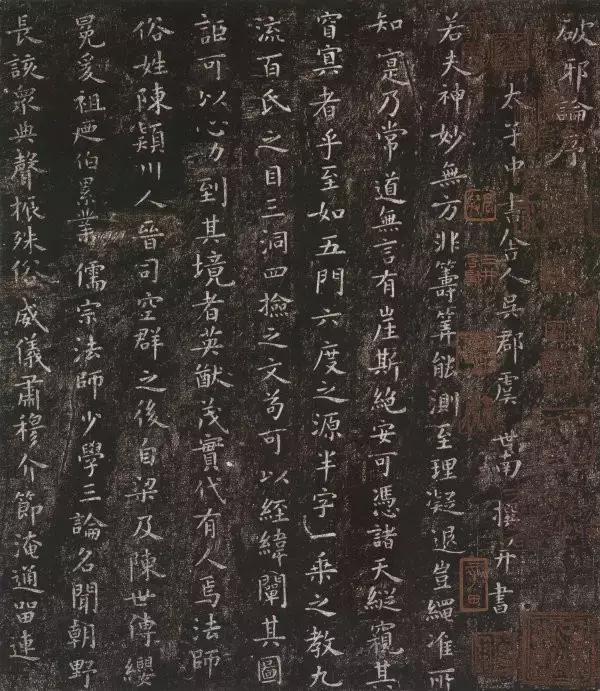 破邪論序
太子中書舍人吳郡虞世南撰并書
若夫神妙無方非籌筭能測至理凝邈豈繩准所
知寔乃常道無言有崖斯絕安可憑諸天縱窺其
窅冥者乎至如五門六度之源半字一乘之教九
流百氏之目三洞四撿之文苟可以經緯闡其圖
詎可以心力到其境者英猷茂實代有人焉法師
俗姓陳潁川人晉司空群之後自梁及陳世傳纓
冕爰祖廼伯累業儒宗法師少學三論名聞朝野
長該眾典聲振殊俗威儀肅穆介節淹通留連